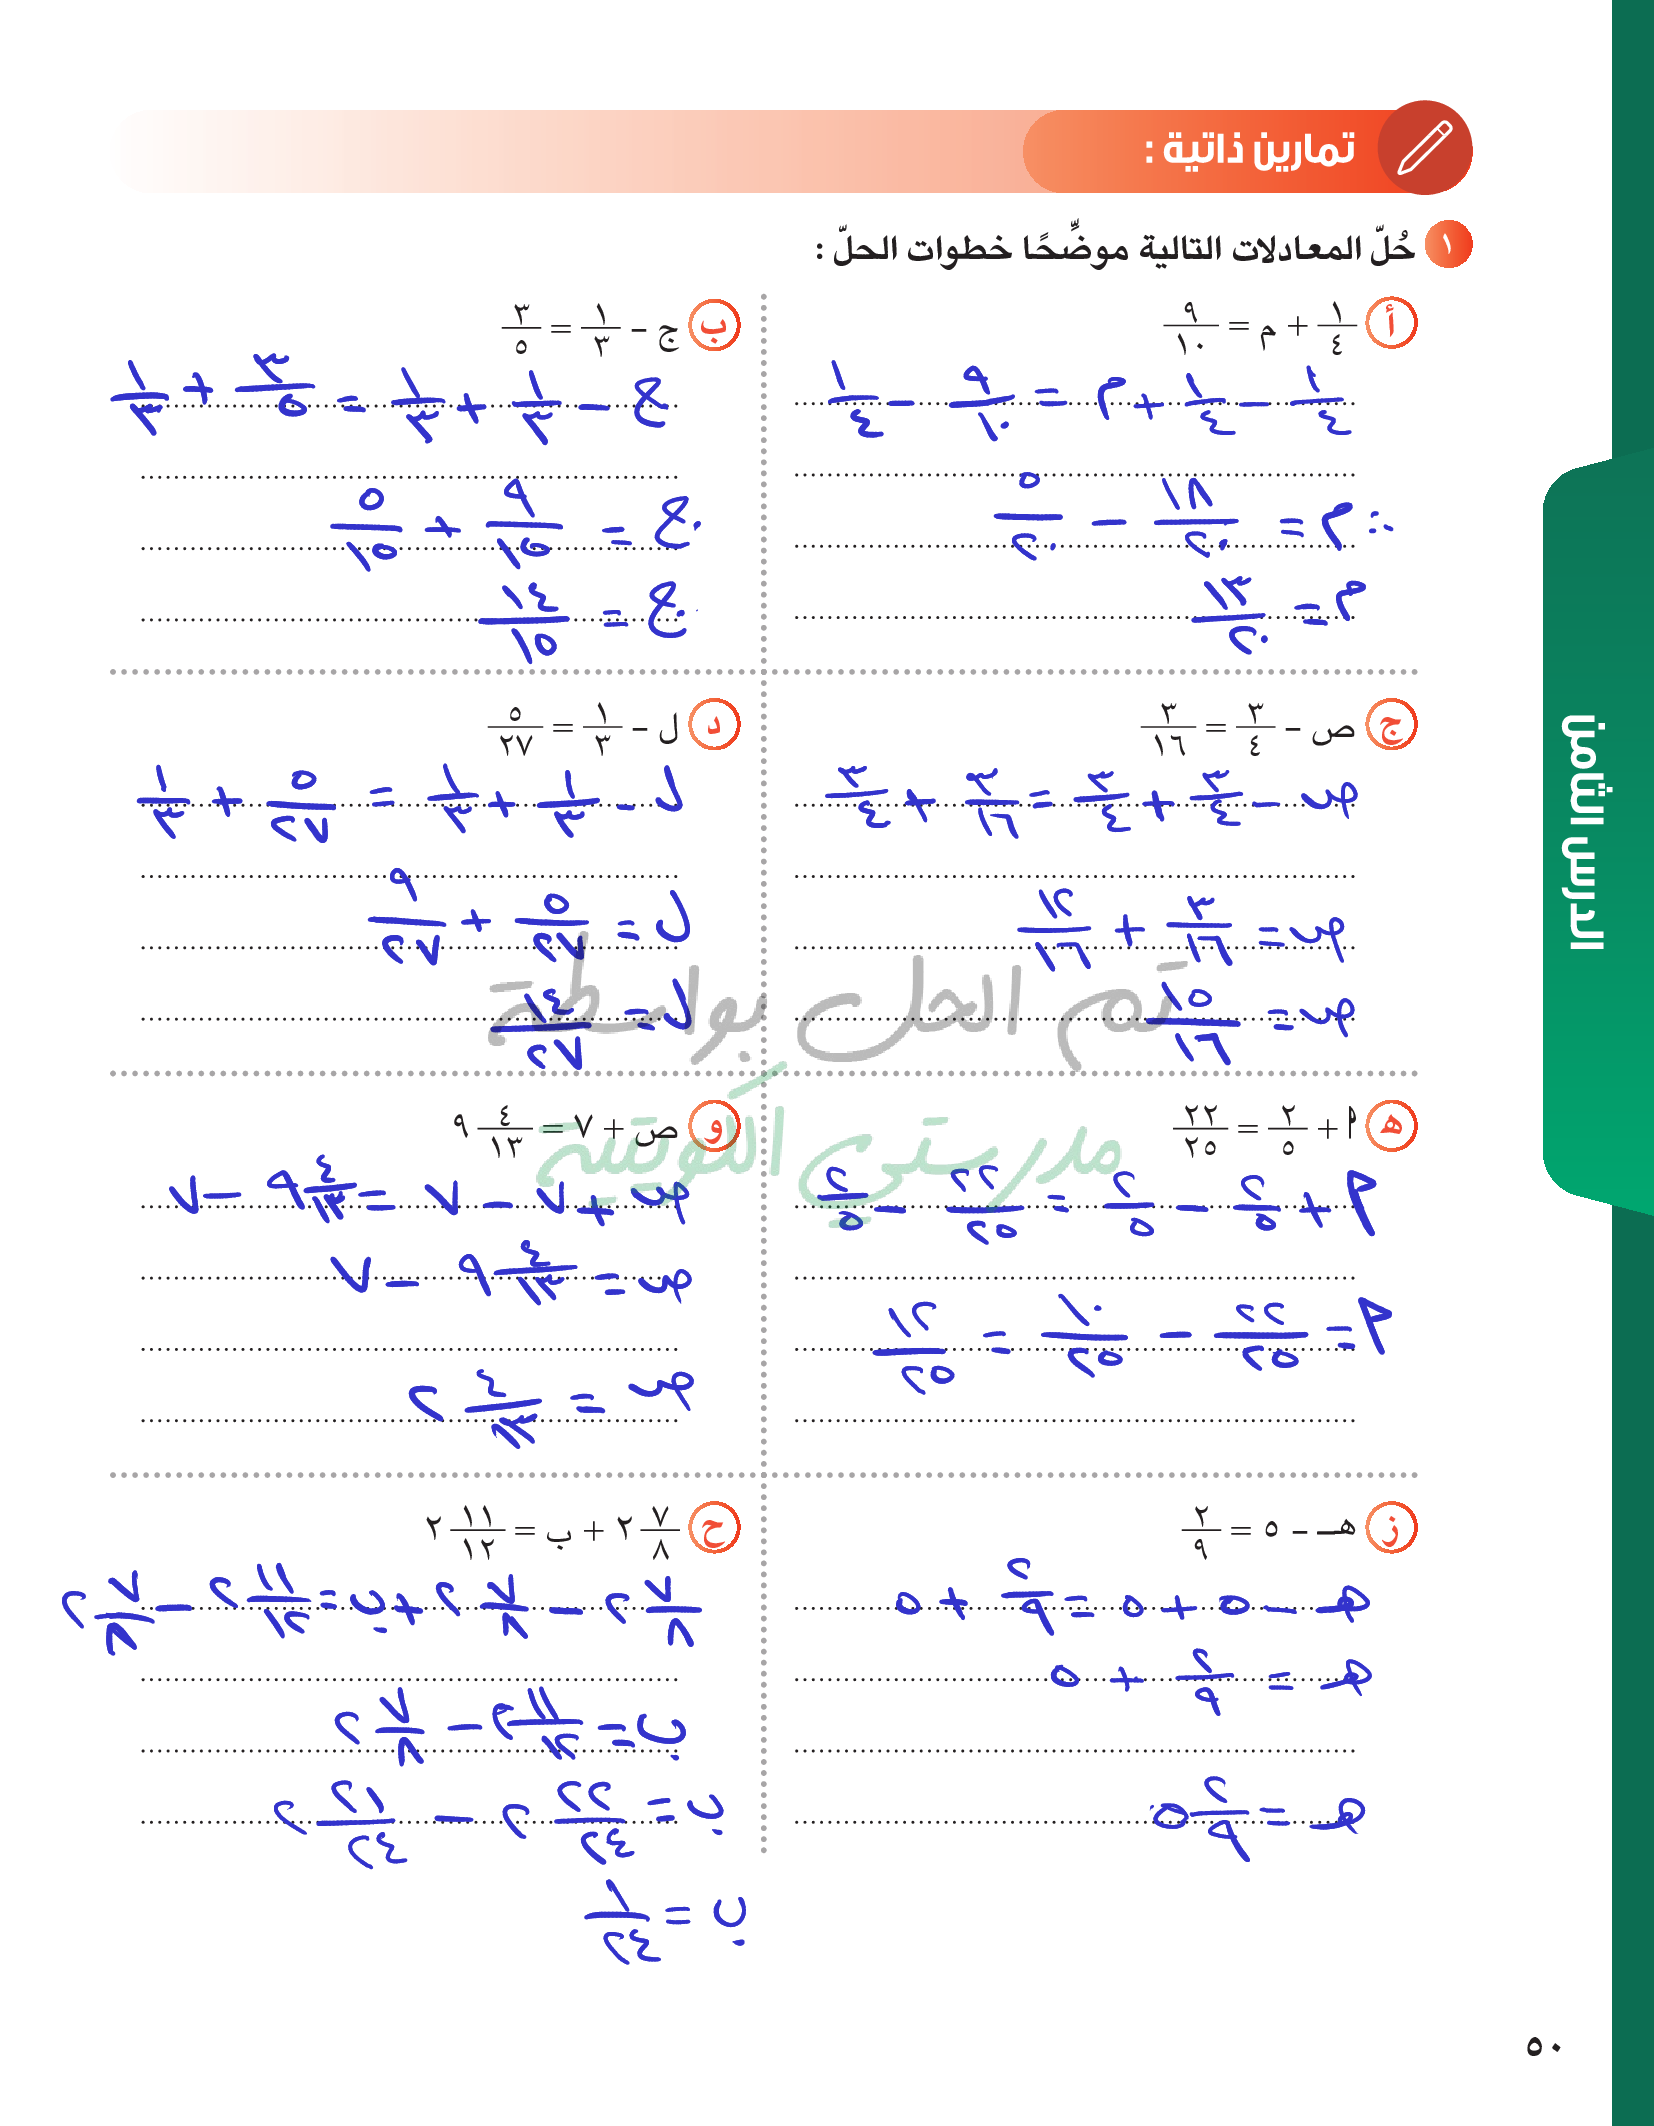 تمارين ذاتية :
١ حُلّ المعادلات التالية موضِّحًا خطوات الحلّ :
أ ١/٤ + م = ٩/١٠
١/٤ − ١/٤ + م = ٩/١٠ − ١/٤
∴ م = ١٨/٢٠ − ٥/٢٠
م = ١٣/٢٠
ب ج − ١/٣ = ٣/٥
ج − ١/٣ + ١/٣ = ٣/٥ + ١/٣
ج = ٩/١٥ + ٥/١٥
ج = ١٤/١٥
ج ص − ٣/٤ = ٣/١٦
ص − ٣/٤ + ٣/٤ = ٣/١٦ + ٣/٤
ص = ٣/١٦ + ١٢/١٦
ص = ١٥/١٦
د ل − ١/٣ = ٥/٢٧
ل − ١/٣ + ١/٣ = ٥/٢٧ + ١/٣
ل = ٥/٢٧ + ٩/٢٧
ل = ١٤/٢٧
تم الحل بواسطة
مدرستي الكويتية
هـ أ + ٢/٥ = ٢٢/٢٥
أ + ٢/٥ − ٢/٥ = ٢٢/٢٥ − ٢/٥
أ = ٢٢/٢٥ − ١٠/٢٥ = ١٢/٢٥
و ص + ٧ = ٤/١٣ ٩
ص + ٧ − ٧ = ٤/١٣ ٩ − ٧
ص = ٤/١٣ ٩ − ٧
ص = ٤/١٣ ٢
ز هـ − ٥ = ٢/٩
هـ − ٥ + ٥ = ٢/٩ + ٥
هـ = ٢/٩ + ٥
هـ = ٢/٩ ٥
ح ٧/٨ ٢ + ب = ١١/١٢ ٢
٧/٨ ٢ − ٧/٨ ٢ + ب = ١١/١٢ ٢ − ٧/٨ ٢
ب = ١١/١٢ ٢ − ٧/٨ ٢
ب = ٢٢/٢٤ ٢ − ٢١/٢٤ ٢
ب = ١/٢٤
الدرس الثامن
٥٠